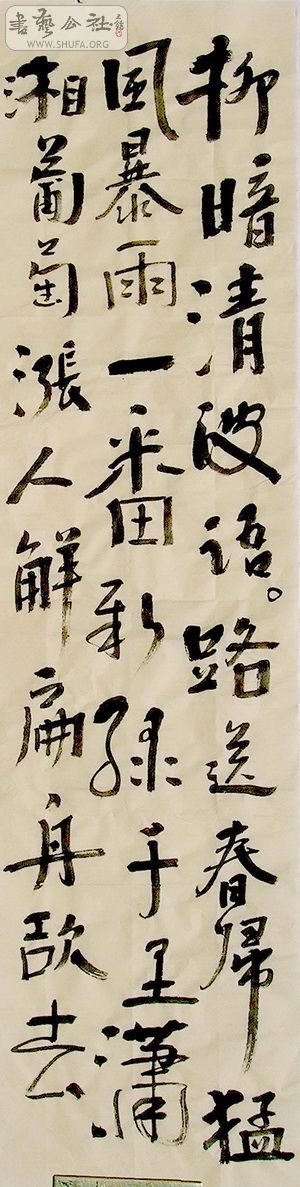 書藝公社
WWW.SHUFA.ORG
柳暗清波语。路送春歸猛
風暴雨一番新绿千里瀟
湘葡萄漲人解扁舟欲去